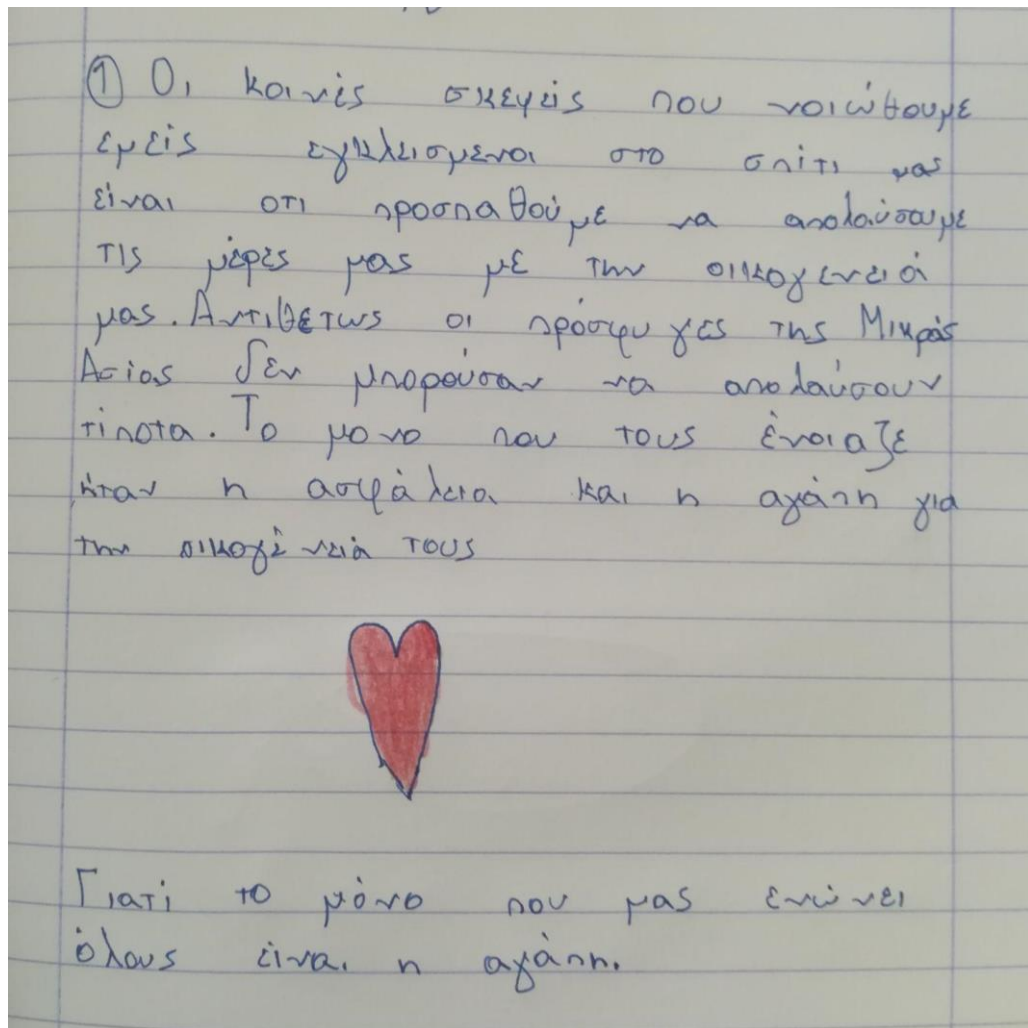 ① Οι κοινές σκεψεις που νοιώθουμε
εμείς εγκλεισμενοι στο σπίτι μας
είναι οτι προσπαθούμε να απολαύσουμε
τις μέρες μας με την οικογενειά
μας. Αντιθετως οι πρόσφυγες της Μικράς
Ασιας δεν μπορούσαν να απολαύσουν
τίποτα. Το μονο που τους ένοιαζε
ήταν η ασφάλεια και η αγάπη για
την οικογένειά τους
Γιατί το μόνο που μας ενώνει
όλους είναι η αγάπη.